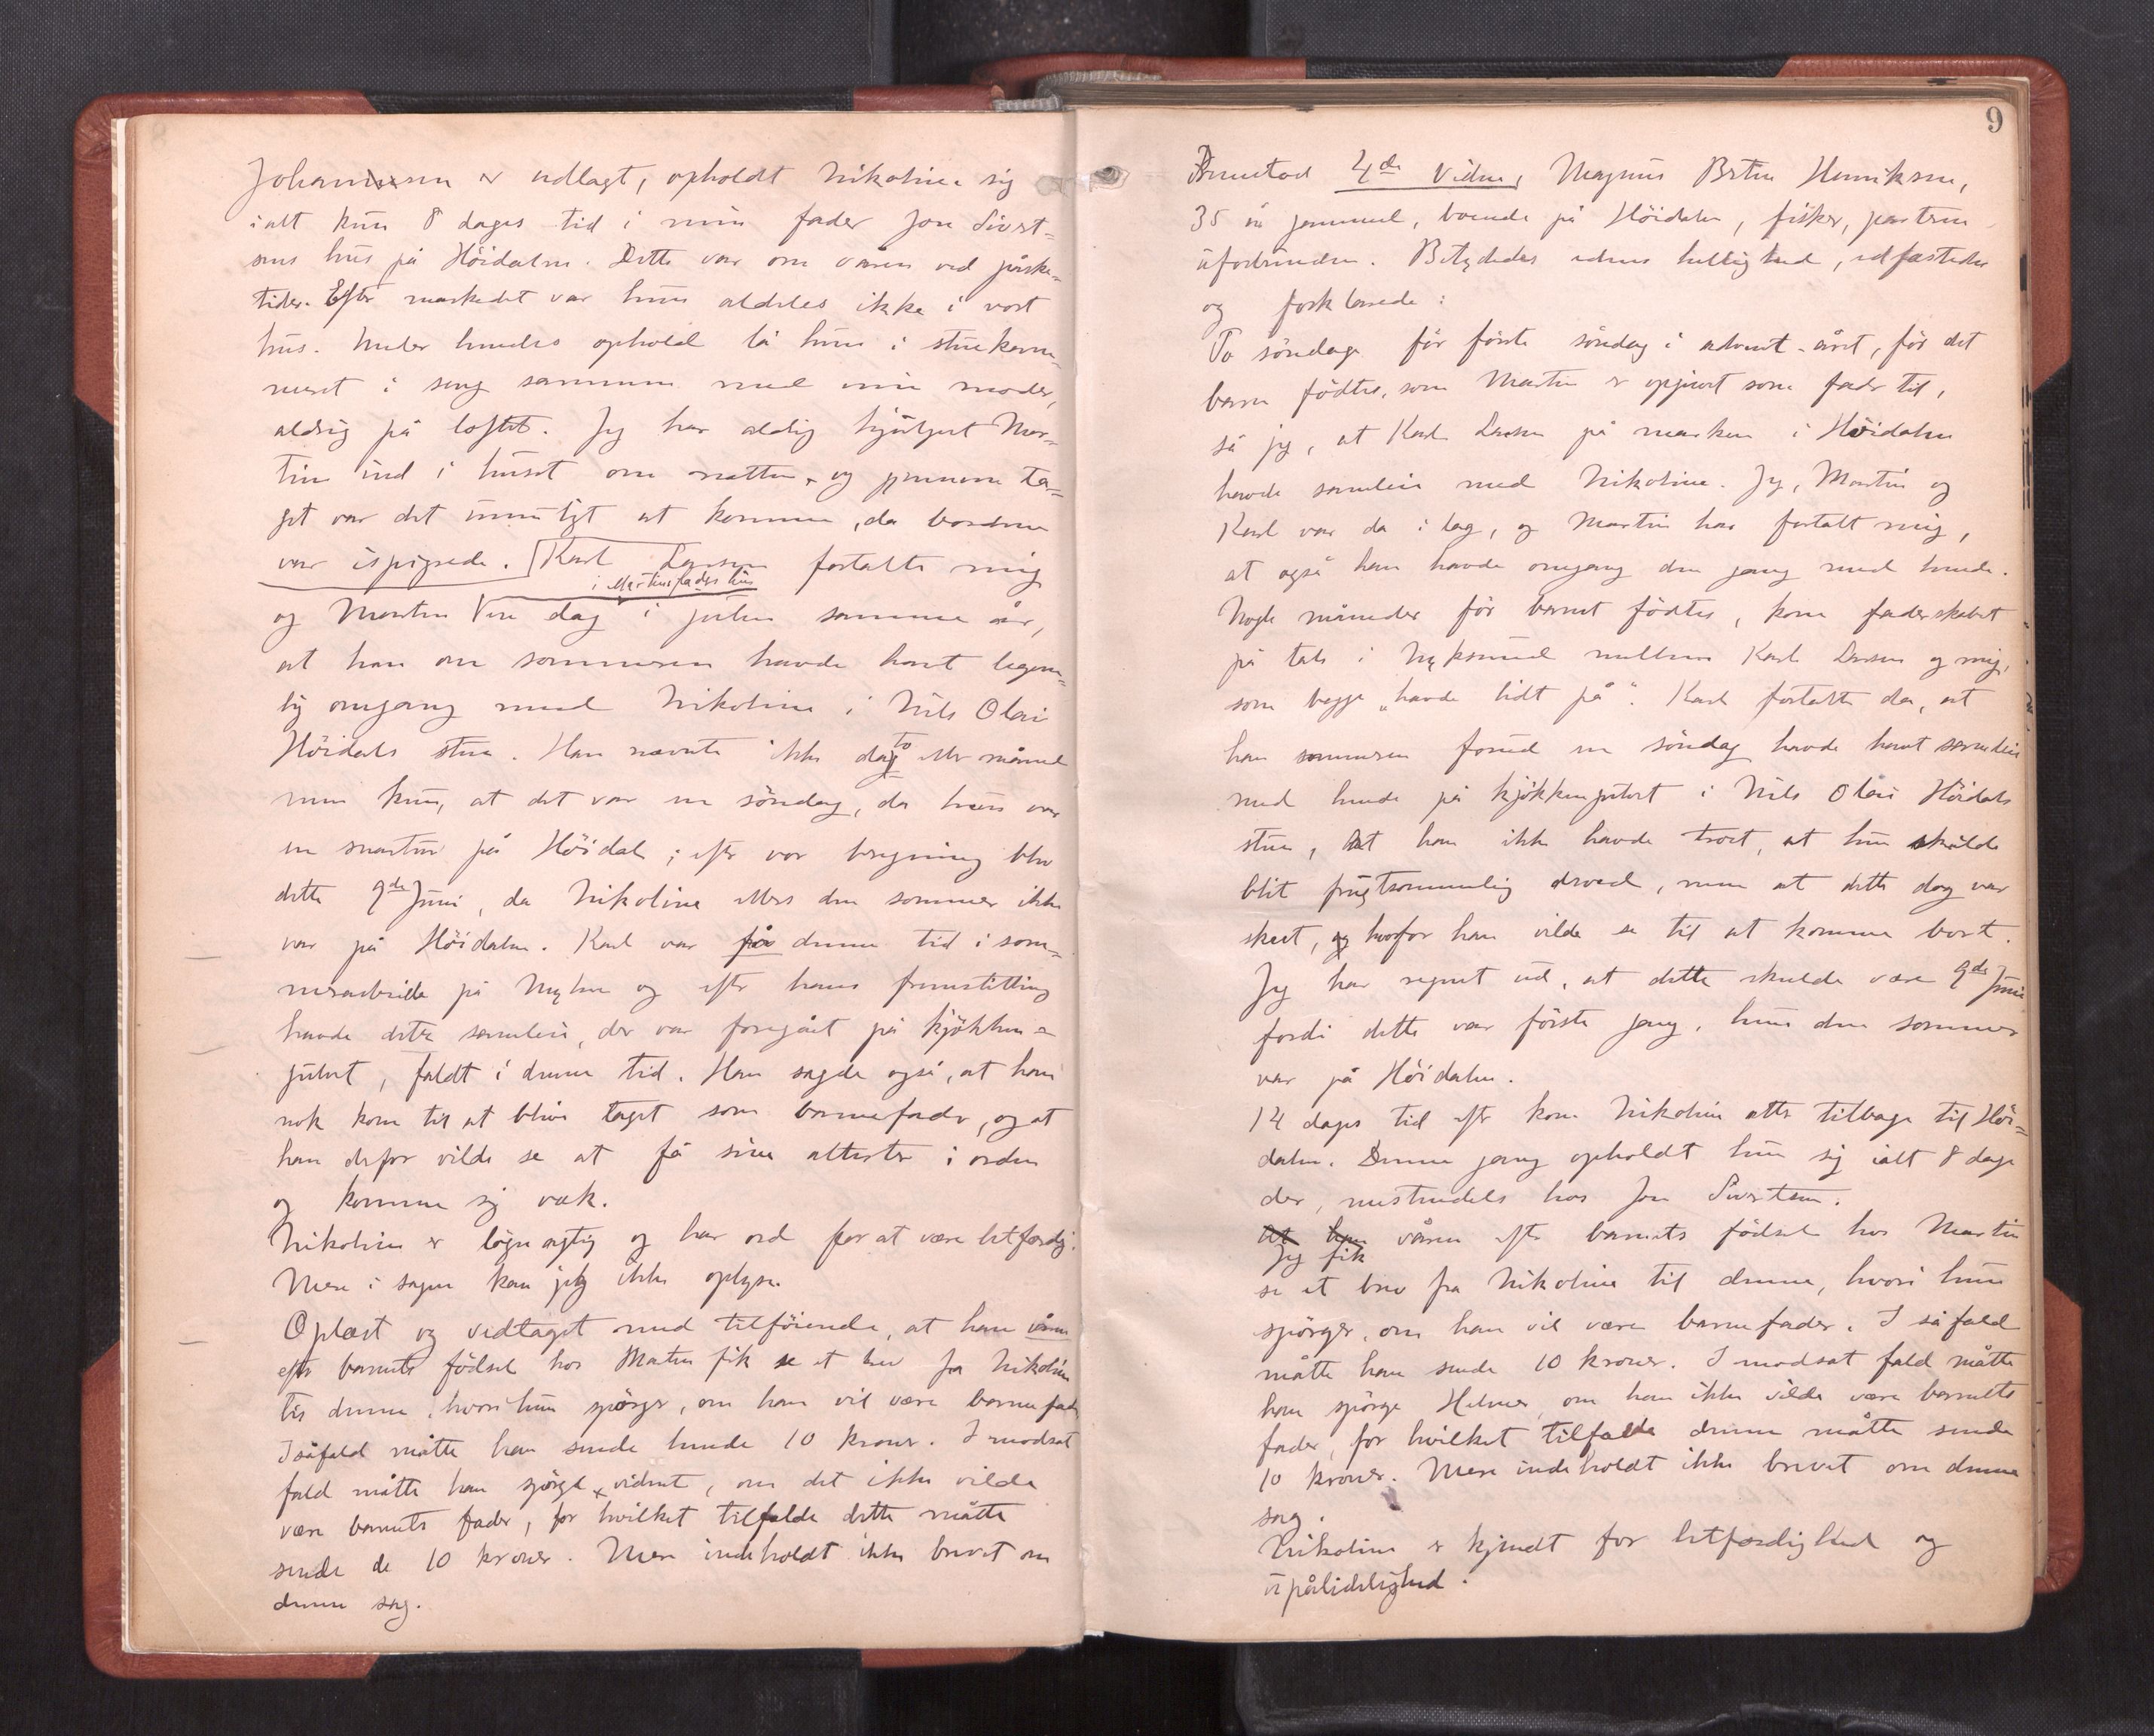 Johannessen er udlagt, opholdt Nikoline sig
ialt kun 8 dages tid i min fader Jon Sivert-
sens hus på Höidalen. Dette var om våren ved påske-
tider. Efter markedet var hun aldeles ikke i vort
hus. Under hendes ophold lå hun i stuekam-
meret i seng sammen med min moder,
aldrig på loftet. Jeg har aldrig hjulpet Mar-
tin ind i huset om natten, og gjennem ta-
get var det umuligt at komme, da bordene
var ispigrede. Karl Larsen fortalte mig
i Martins faders hus
og Martin 1ste dag i julen samme år,
at han om sommeren havde havt legem-
lig omgang med Nikoline i Nils Olai
Höidals stue. Han nævnte ikke dagto eller måned
men kun, at det var en söndag, da hun var
en snartur på Höidal; efter vor beregning blev
dette 9de Juni, da Nikoline ellers den sommer ikke
var på Höidalen. Karl var på denne tid i som-
merarbeide på Myhre og efter hans fremstilling
havde dette samleie, der var foregået på kjökken-
gulvet, faldt i denne tid. Han sagde også, at han
nok kom til at blive taget som barnefader, og at
han derfor vilde se at få sine attester i orden
og komme sig væk.
Nikoline er lögnagtig og har ord for at være letfærdig.
Mere i sagen kan jeg ikke oplyse.
Oplæst og vedtaget med tilföiende, at han våren
efter barnets födsel hos Martin fik se et brev fra Nikoline
til denne, hvori hun spörger, om han vil være barnefader
Isåfald måtte han sende hende 10 kroner. I modsat
fald måtte han spörge vidnet, om det ikke vilde
være barnets fader, for hvilket tilfælde dette måtte
sende de 10 kroner. Mere indeholdt ikke brevet om
denne sag.
9
Fremstod 4de Vidne, Magnus Henriksen,
35 år gammel, boende på Höidalen, fisker, parterne
uforbunden. Betydedes edens hellighed, edfæstedes
og forklarede:
To söndage för förste söndag i advent-året, för det
barn födtes, som Martin er opgivet som fader til,
så jeg, at Karl Larsen på marken i Höidalen
havde samleie med Nikoline. Jeg, Martin og
Karl var da i lag, og Martin har fortalt mig,
at også han havde omgang den gang med hende.
Nogle måneder för barnet födtes, kom faderskabet
på tale i Nyksund mellem Karl Larsen og mig,
som begge "havde lidt på". Karl fortalte da, at
han sommeren forud en söndag havde havt samleie
med hende på kjökkengulvet i Nils Olai Höidals
stue, at han ikke havde troet, at hun skulde
blit frugtsommelig derved, men at dette dog var
skeet, og hvorfor han vilde se til at komme bort.
Jeg har regnet ud, at dette skulde være 9de Juni
fordi dette var förste gang, hun den sommer
var på Höidalen.
14 dages tid efter kom Nikoline atter tilbage til Höi-
dalen. Denne gang opholdt hun sig ialt 8 dage
der, mestendels hos Jon Sivertsen.
At han våren efter barnets födsel hos Martin
Jeg fik
se et brev fra Nikoline til denne, hvori hun
spörger, om han vil være barnefader. I såfald
måtte han sende 10 kroner. I modsat fald måtte
han spörge Helmer, om han ikke vilde være barnets
fader, for hvilket tilfælde denne måtte sende
10 kroner. Mere indeholdt ikke brevet om denne
sag.
Nikoline er kjendt for letfærdighed og
upålidelighed.